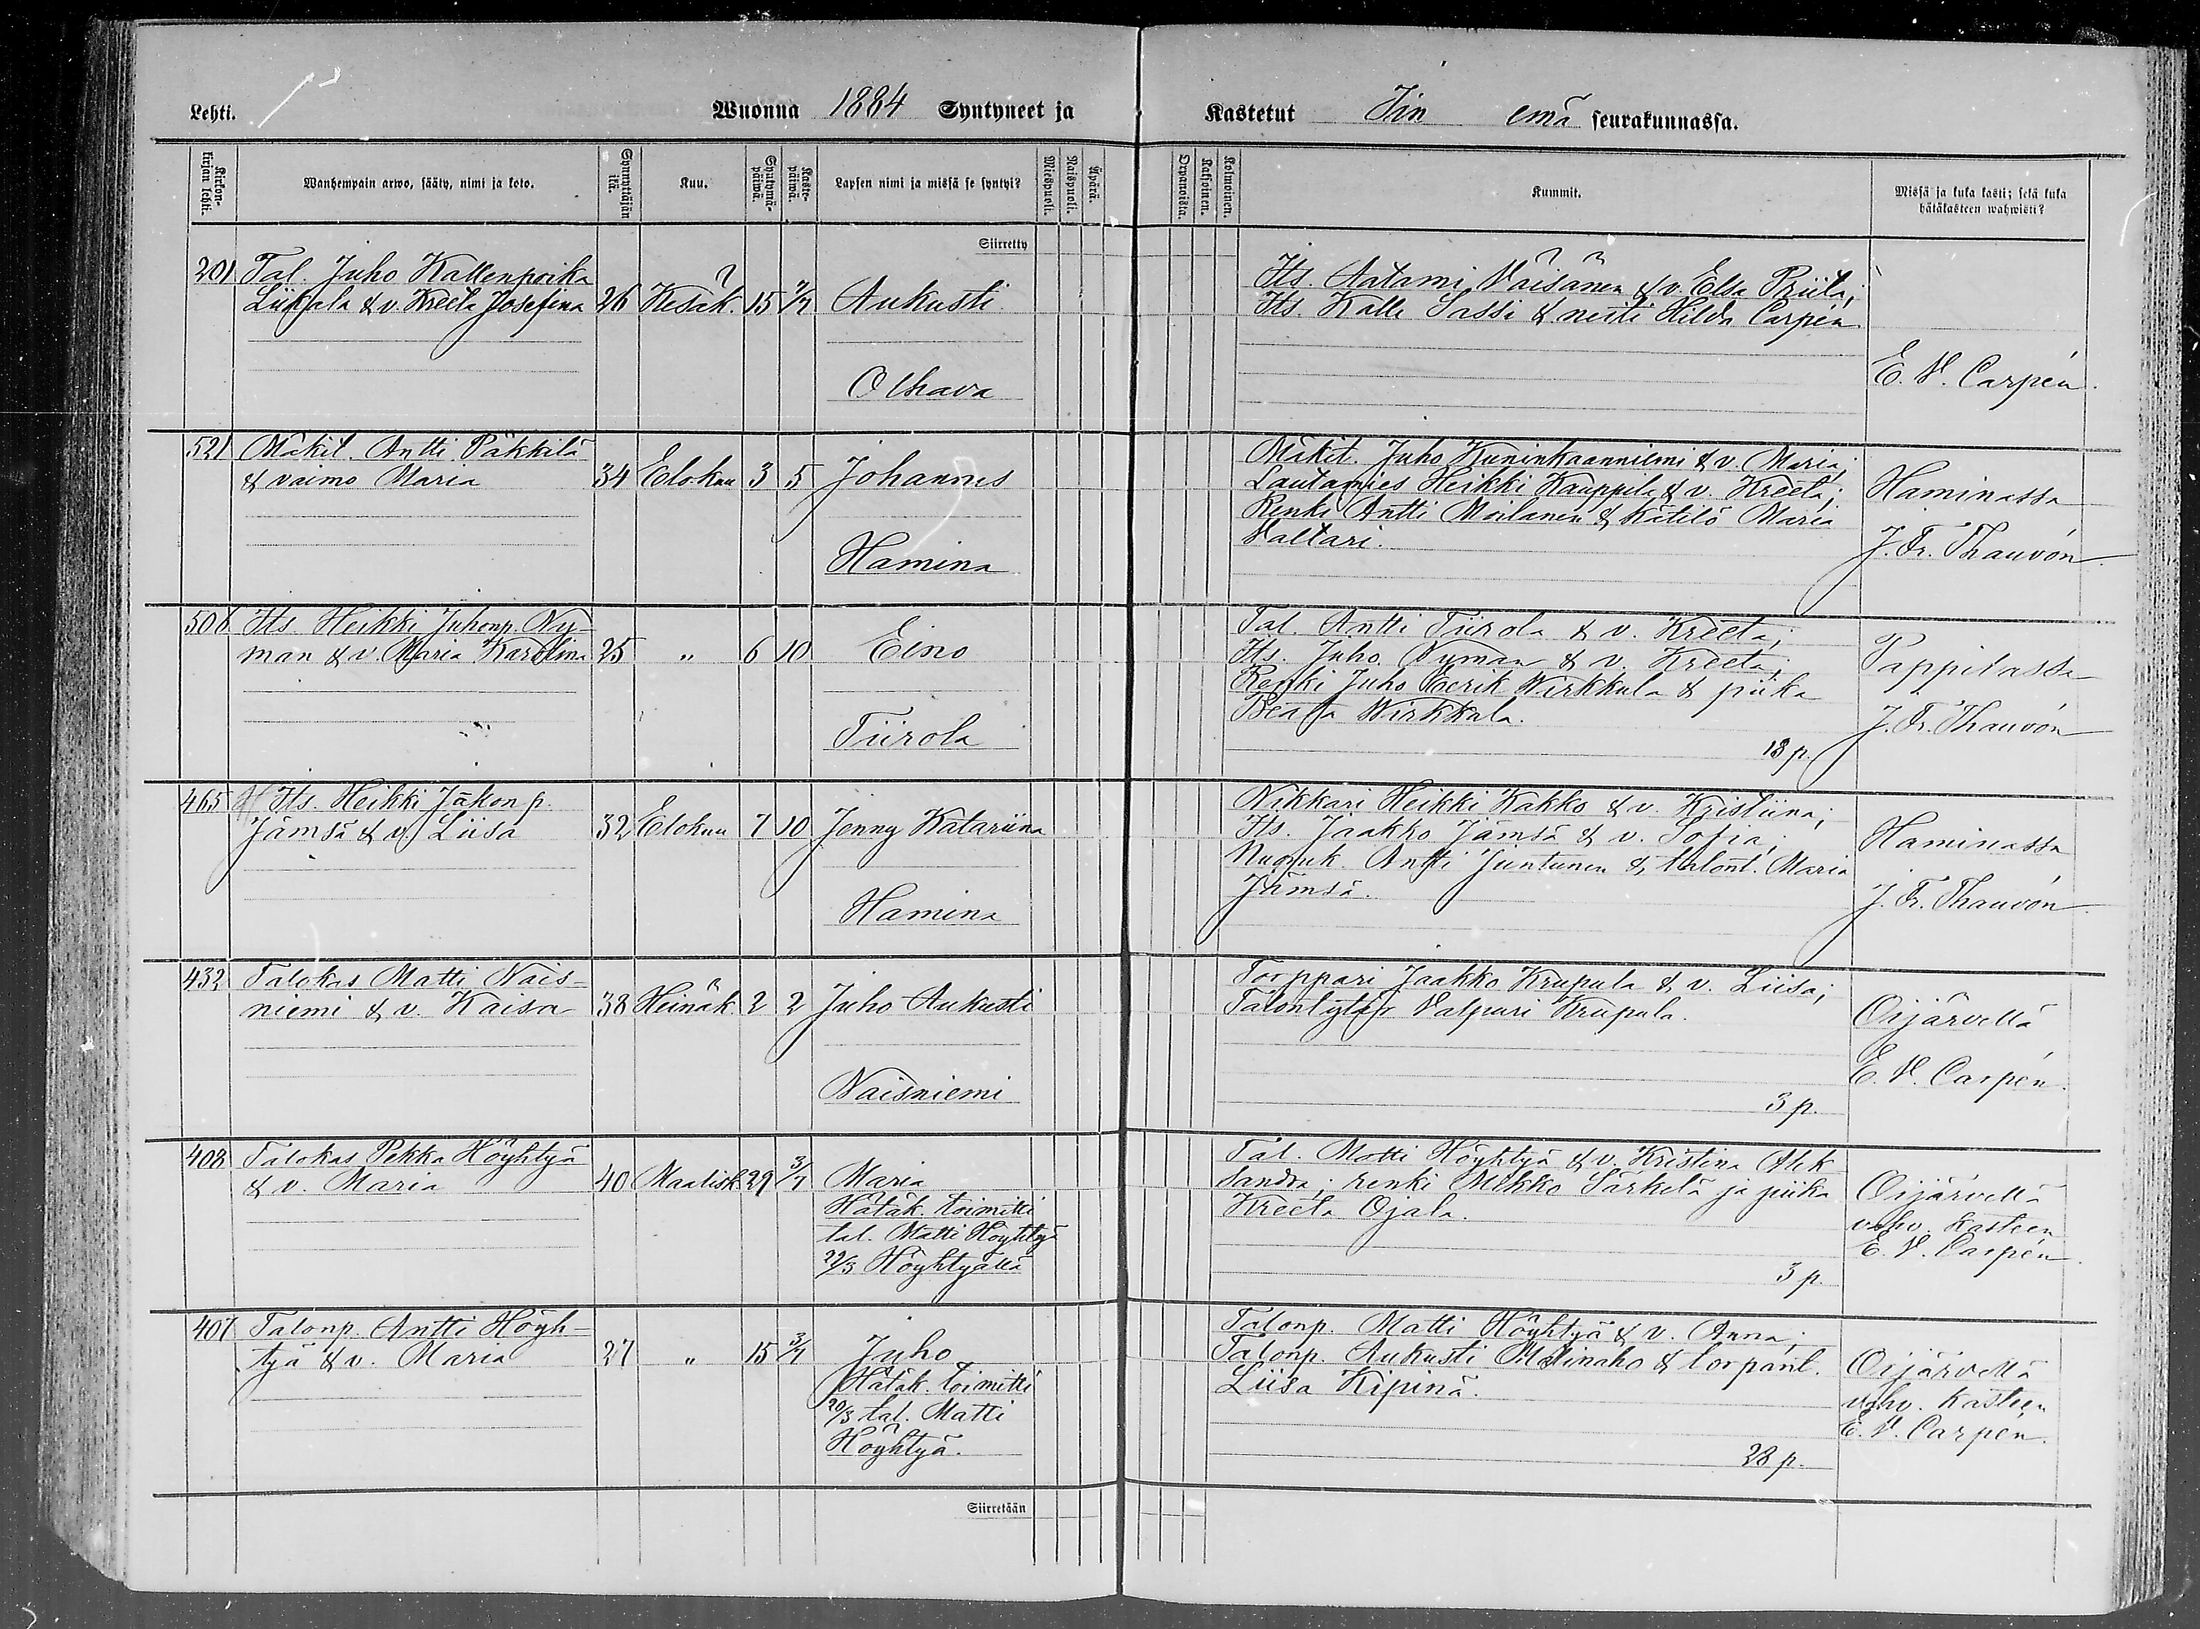 Lehti.
Wuonna 1884 Syntyneet ja
Kastetut Iin emä seurakunnassa.
Kirkon-
kirjan lehti.
Wanhempain arwo, sääty, nimi ja koto.
Synnyttäjän
ikä.
Kuu.
Syntymä-
päiwä.
Kaste-
päiwä.
Lapsen nimi ja missä se syntyi?
Miespuoli.
Naispuoli.
Äpärä.
Orpanoista.
Kaksoinen.
Kolmoinen.
Kummit.
Missä ja kuka kasti; sekä kuka
hätäkasteen wahwisti?
Siirretty
201 Tal. Juho Kallenpoika
Liikala & v. Kreeta Josefina 26 Kesäk. 15 2/7 Aukusti
Olhava
Its. Aatami Väisänen & v. Elsa Priita;
Its. Kalle Sassi & neiti Hilda Carpén
E. V. Carpén.
521 Mäkit. Antti Päkkilä
& vaimo Maria 34 Elokuu 3 5 Johannes
Hamina
Mäkit. Juho Kuninkaanniemi & v. Maria;
Lautamies Heikki Kauppila & v. Kreeta;
Renki Antti Moilanen & Kätilö Maria
Valtari.
Haminassa
J. Fr. Thauvón
506 Its. Heikki Juhonp. Ny-
man & v. Maria Karolina 25 " 6 10 Eino
Tiirola
Tal. Antti Tiirola & v. Kreeta;
Its. Juho Nyman & v. Kreeta;
Renki Juho Eerik Wirkkula & piika
Beata Wirkkula.
18 p.
Pappilassa
J. Fr. Thauvón
465 Its. Heikki Jakon p.
Jämsä & v. Liisa 32 Elokuu 7 10 Jenny Katariina
Hamina
Nikkari Heikki Kakko & v. Kristiina;
Its. Jaakko Jämsä & v. Sofia;
Nuoruk. Antti Juntunen & talont. Maria
Jämsä.
Haminassa
J. Fr. Thauvón
432 Talokas Matti Nais-
niemi & v. Kaisa 38 Heinäk. 2 2 Juho Aukusti
Naisniemi
Torppari Jaakko Krupula & v. Liisa;
Talontytär Valpuri Krupula.
3 p.
Oijärvellä
E. V. Carpén.
408 Talokas Pekka Höyhtyä
& v. Maria 40 Maalisk. 29 3/7 Maria
Hätäk. toimitti
tal. Matti Höyhtyä
29/3 Höyhtyällä
Tal. Matti Höyhtyä & v. Kristina Alek
sandra; renki Mikko Särkelä ja piika
Kreeta Ojala.
3 p.
Oijärvellä
vahv. kasteen
E. V. Carpén.
407 Talonp. Antti Höyh-
tyä & v. Maria 27 " 15 3/7 Juho
Hätäk. toimitti
20/3 tal. Matti
Höyhtyä.
Talonp. Matti Höyhtyä & v. Anna;
Talonp. Aukusti Metinaho & torpant.
Liisa Kipinä.
28 p.
Oijärvellä
vahv. kasteen
E. V. Carpén.
Siirretään